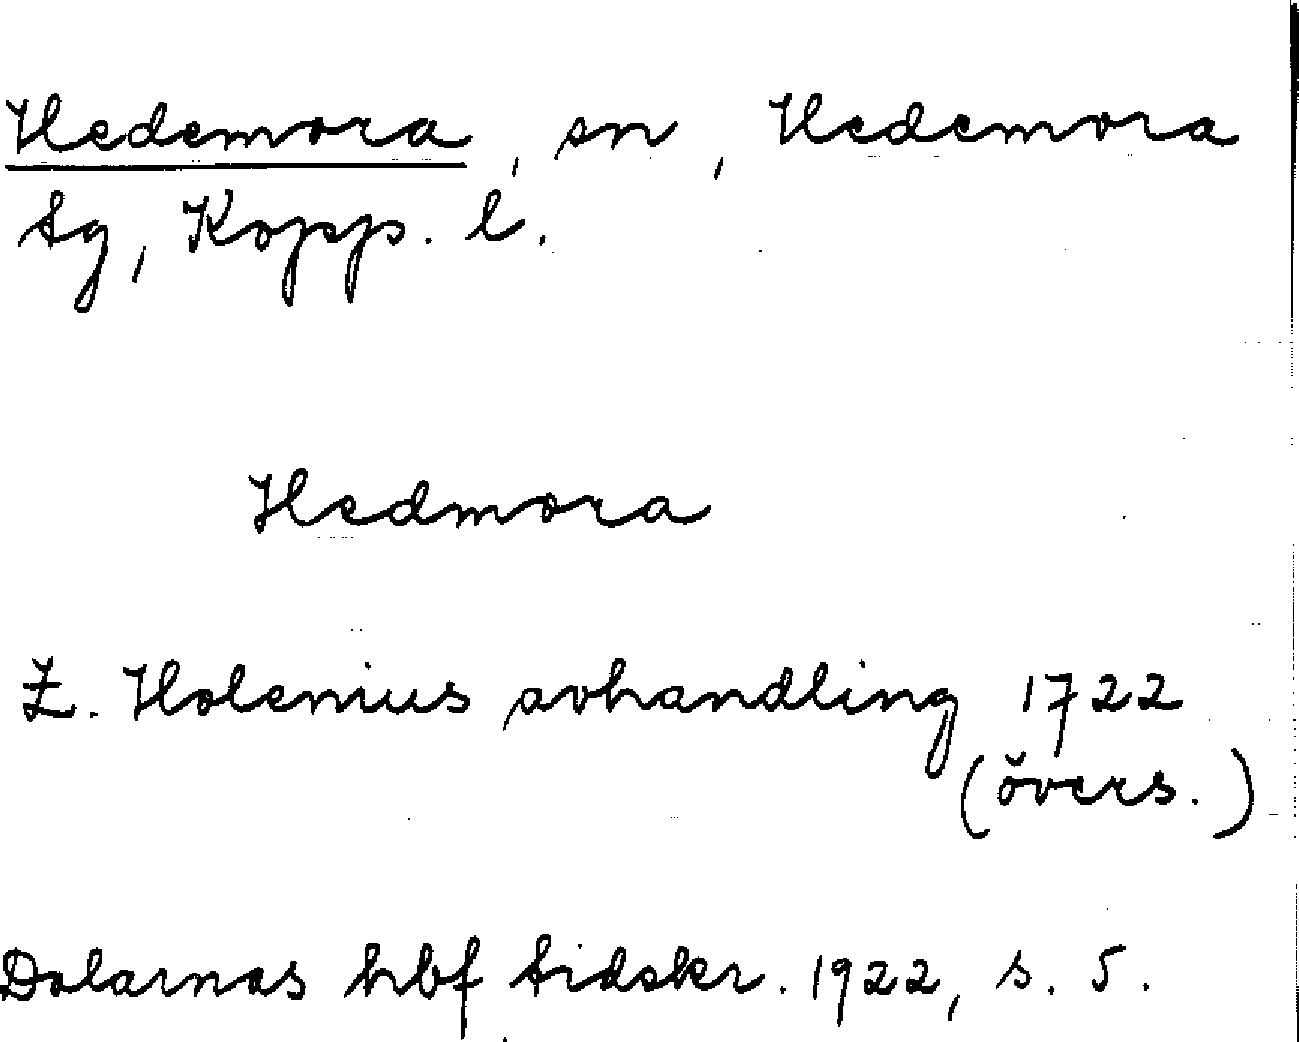 Hedemora, sn, Hedemora
tg, Kopp. l.
Hedmora
Z. Holenius avhandling 1722
(övers.)
Dalarnas hbf tidskr. 1922, s. 5.